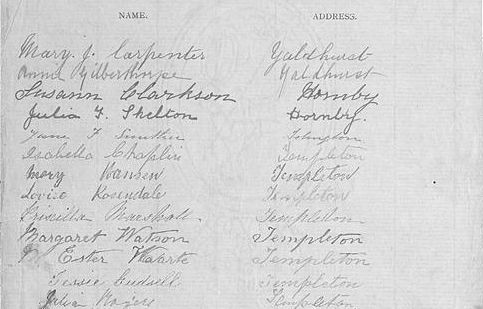 NAME. ADDRESS.
Mary J. Carpenter Yaldhurst
Annie Gilberthorpe Yaldhurst
Susann Clarkson Hornby
Julia F. Shelton Hornby.
Jane F
Isabella Chaplin Templeton
Mary Hansen Templeton
Lovise Rosendale Templeton
Priscilla Marshall. Templeton
Margaret Watson Templeton
Ester Templeton
Templeton
Julia Rogers Templeton